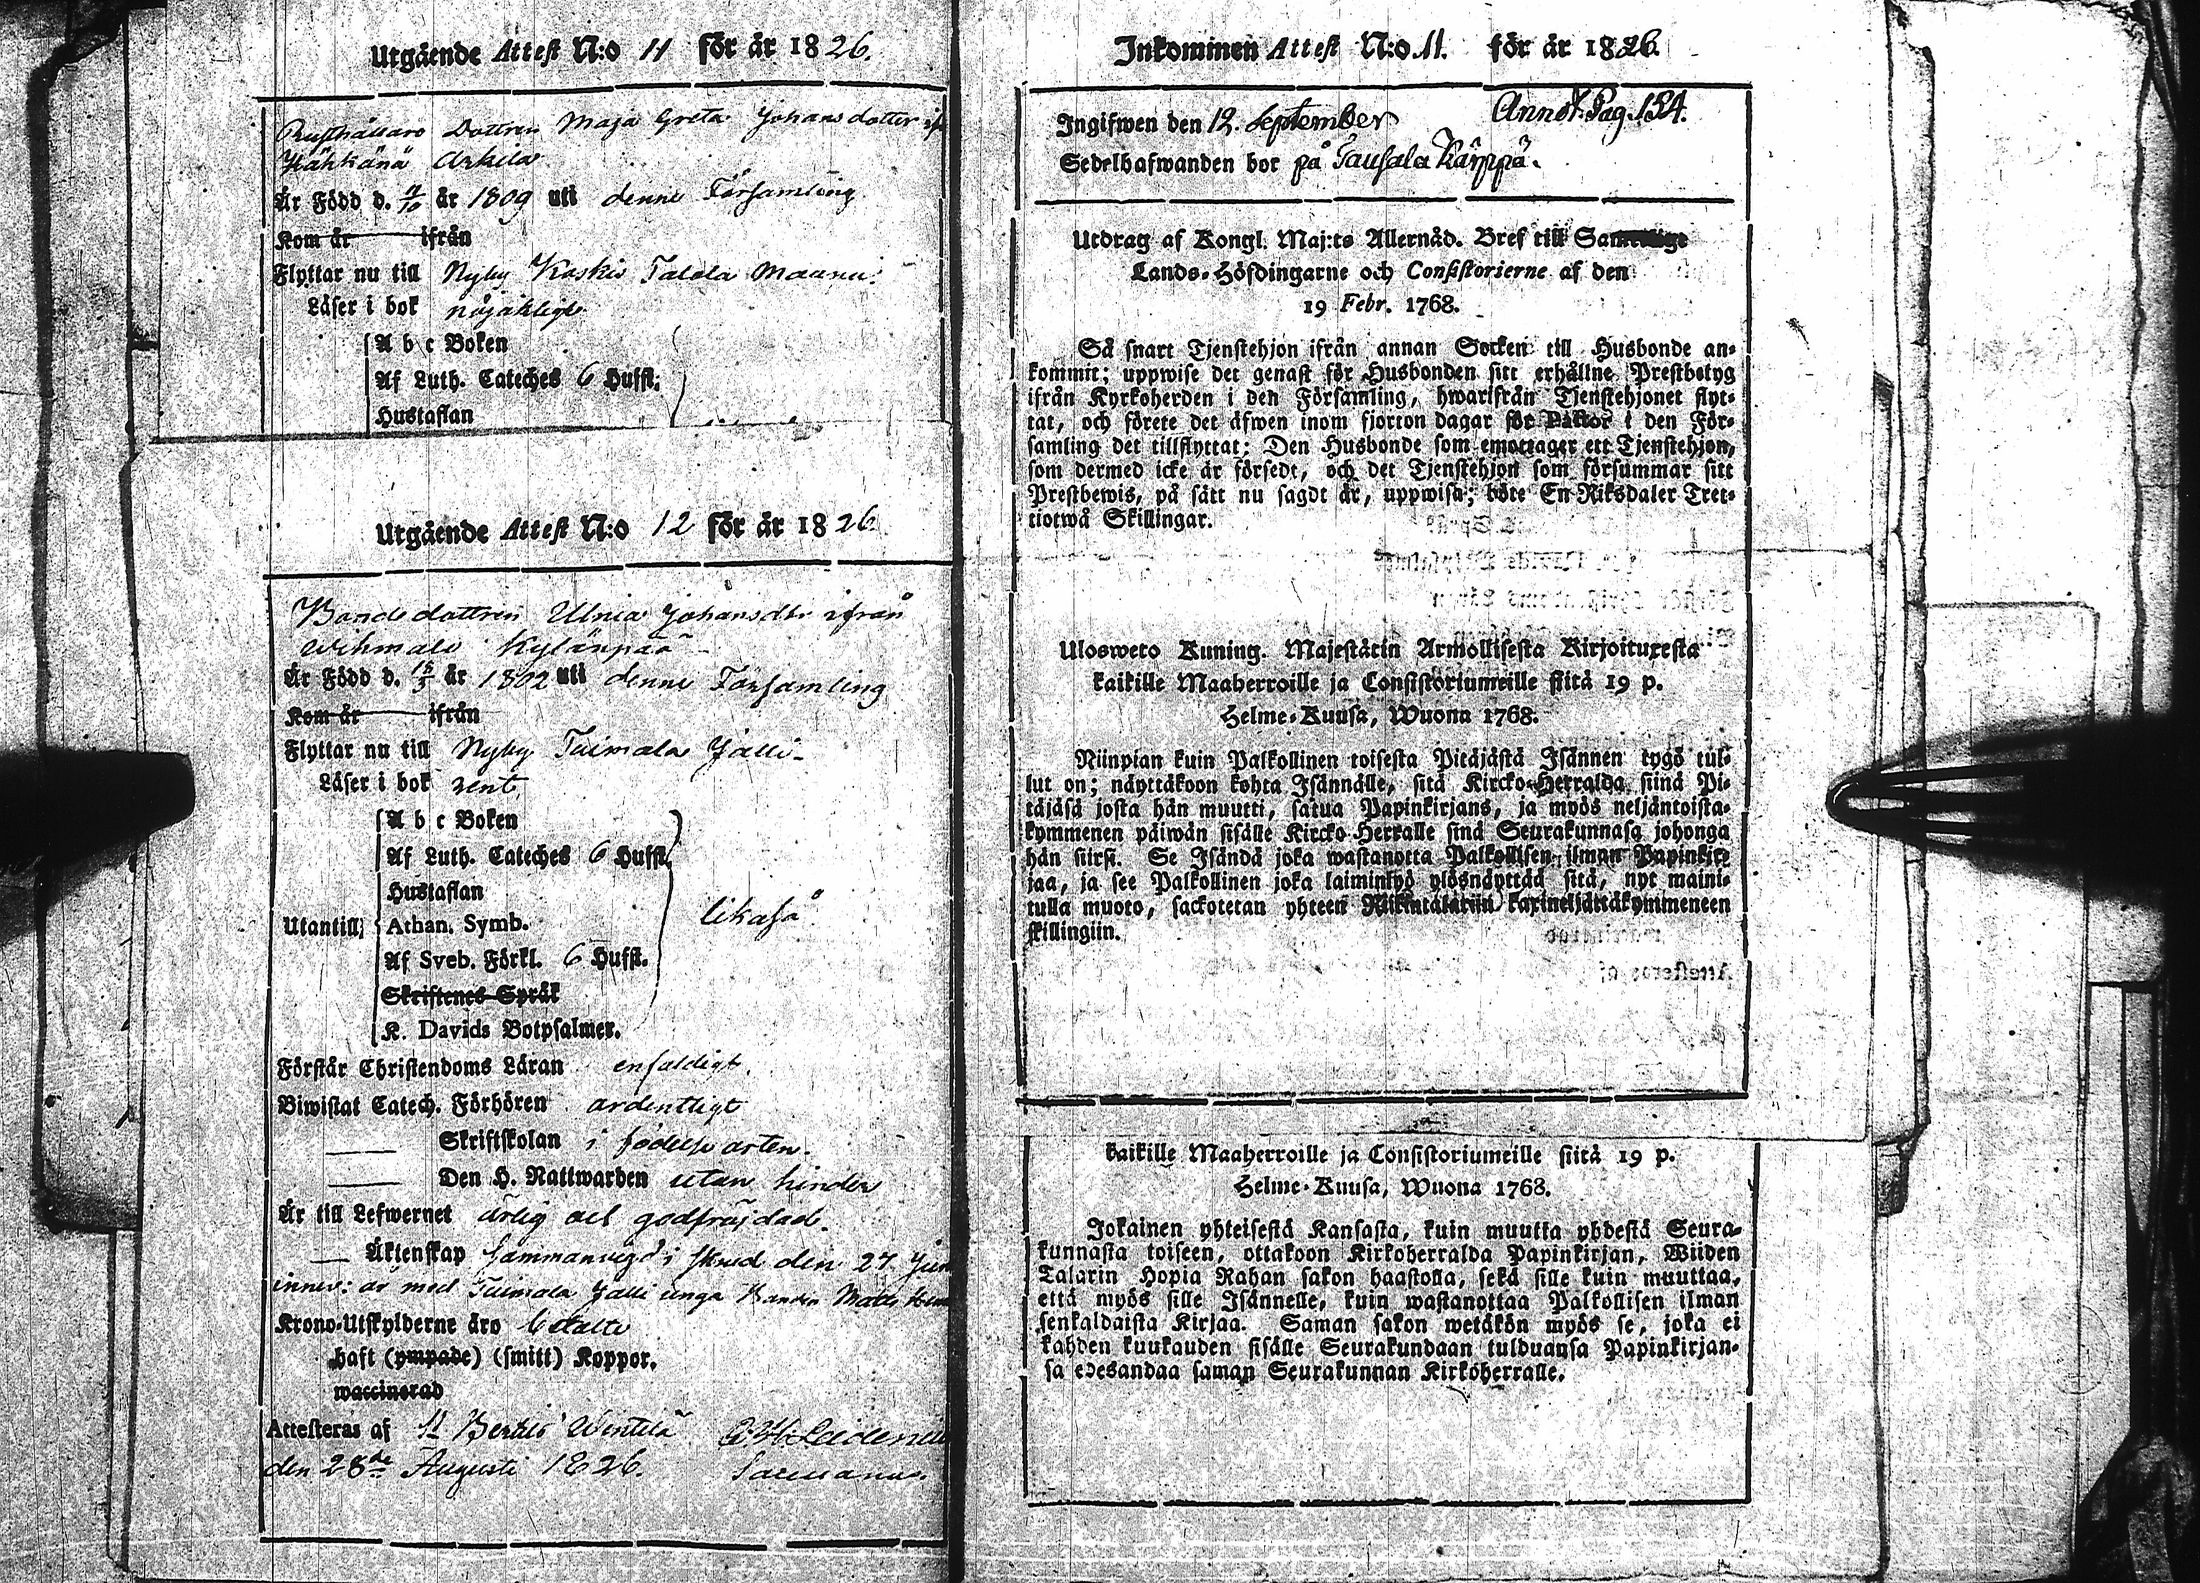 Utgående Attest N:o 11 för år 1826.
Rusthållare Dottren Maja Greta Johansdotter
Kähkänä Arkila
Är Född d. 11/10 år 1809 uti denne Församling
Kom år ifrån
Flyttar nu till Nyby Koskis Talola
Läser i bok nöjakligt
A b c Boken
Af Luth. Cateches 6 Hufst;
Hustaflan
Utgående Attest N:o 12 för år 1826.
Bondedottren Ulrica Johansdtr ifrån
Wihmalo Kylänpää
Är Född d. 15/3 år 1802 uti denne Församling
Kom år ifrån
Flyttar nu till Nyby Tuimala Jälli
Läser i bok rent
A b c Boken
Af Luth. Cateches 6 Hufst.
Hustaflan
Utantill; Athan. Symb. likaså
Af Sveb. Förkl. 6 Hufst.
Skriftenes Språk
K. Davids Botpsalmer.
Förstår Christendoms Läran enfaldigt.
Biwistat Catech. Förhören ordentligt
Skriftskolan i födelse orten.
Den H. Nattwarden utan hinder
Är till Lefwernet ärlig och godfräjdad.
Äktenskap Sammanvigd i Skrud den 27
innev: år med Tuimala Jälli unga Bonden Matts
Krono-Utskylderne äro betalte
haft (ympade) (smitt) Koppor.
waccinerad
Attesteras af St Bertils Wintelä
den 28de Augusti 1826.
Inkommen Attest N:o 11. för år 1826.
Ingifwen den 12. September Annot. Pag. 154.
Sedelhafwanden bor på Tausala Kärppä.
Utdrag af Kongl. Maj:ts Allernåd. Bref till Samtelige
Lands-Höfdingarne och Consistorierne af den
19 Febr. 1768.
Så snart Tjenstehjon ifrån annan Socken till Husbonde an-
kommit; uppwise det genast för Husbonden sitt erhållne Prestbetyg
ifrån Kyrkoherden i den Församling, hwarifrån Tjenstehjonet flyt-
tat, och förete det äfwen inom fjorton dagar för Pastor i den För-
samling det tillflyttat; Den Husbonde som emottager ett Tjenstehjon,
som dermed icke är försedt, och det Tjenstehjon som försummar sitt
Prestbewis, på sätt nu sagdt är, uppwisa; böte En Riksdaler Tret-
tiotwå Skillingar.
Ulosweto Kuning. Majestätin Armollisesta Kirjoituxesta
kaikille Maaherroille ja Consistoriumeille siitä 19 p.
Helme-Kuusa, Wuona 1768.
Niinpian kuin Palkollinen toisesta Pitäjästä Isännen tygö tul-
lut on; näyttäköön kohta Isännälle, sitä Kircko-Herralda siinä Pi-
täjäsä josta hän muutti, saatua Papinkirjans, ja myös neljäntoista-
kymmenen päiwän sisälle Kircko-Herralle siinä Seurakunnasa johonga
hän siirsi. Se Isändä joka wastanotta Palkollisen ilman Papinkir-
jaa, ja see Palkollinen joka laiminlyö ylösnäyttää sitä, nyt maini-
tulla muoto, sackotetan yhteen Riikintalariin kaxineljättäkymmeneen
skillingiin.
kaikille Maaherroille ja Consistoriumeille siitä 19 p.
Helme-Kuusa, Wuona 1768.
Jokainen yhteisestä Kansasta, kuin muutta yhdestä Seura-
kunnasta toiseen, ottakoon Kirkoherralda Papinkirjan, Wiiden
Talarin Hopia Rahan sakon haastolla, sekä sille kuin muuttaa,
että myös sille Isännelle, kuin wastanottaa Palkollisen ilman
senkaldaista Kirjaa. Saman sakon wetäkön myös se, joka ei
kahden kuukauden sisälle Seurakundaan tulduansa Papinkirjan-
sa edesandaa saman Seurakunnan Kirkoherralle.